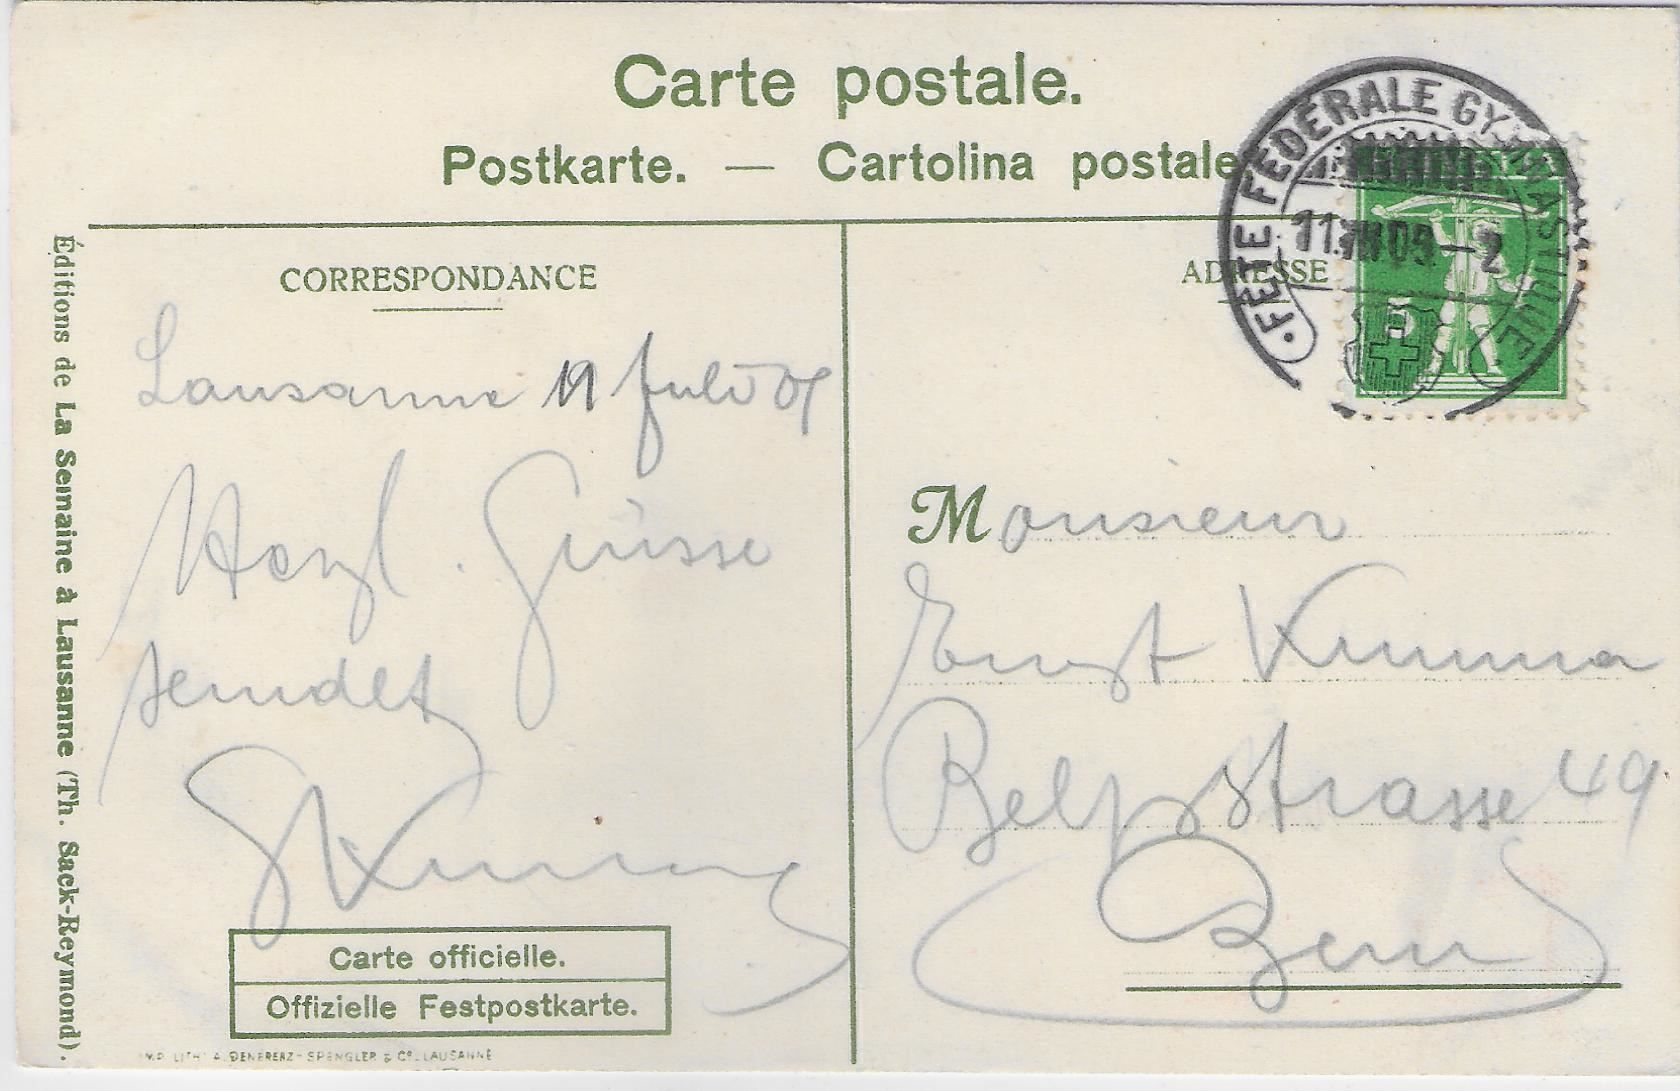 Carte postale.
Postkarte. — Cartolina postale
FETE FEDERALE GYMNASTIQUE
11. VII 09 – 2
5
CORRESPONDANCE
ADRESSE
Lausanne 11 Juli 09
Herzl. Grüsse
sendet
Monsieur
Ernst Kumma
Belpstrasse 49
Bern
Carte officielle.
Offizielle Festpostkarte.
Éditions de La Semaine à Lausanne (Th. Sack-Reymond).
IMP. LITH. A. DENEREAZ-SPENGLER & Cº. LAUSANNE